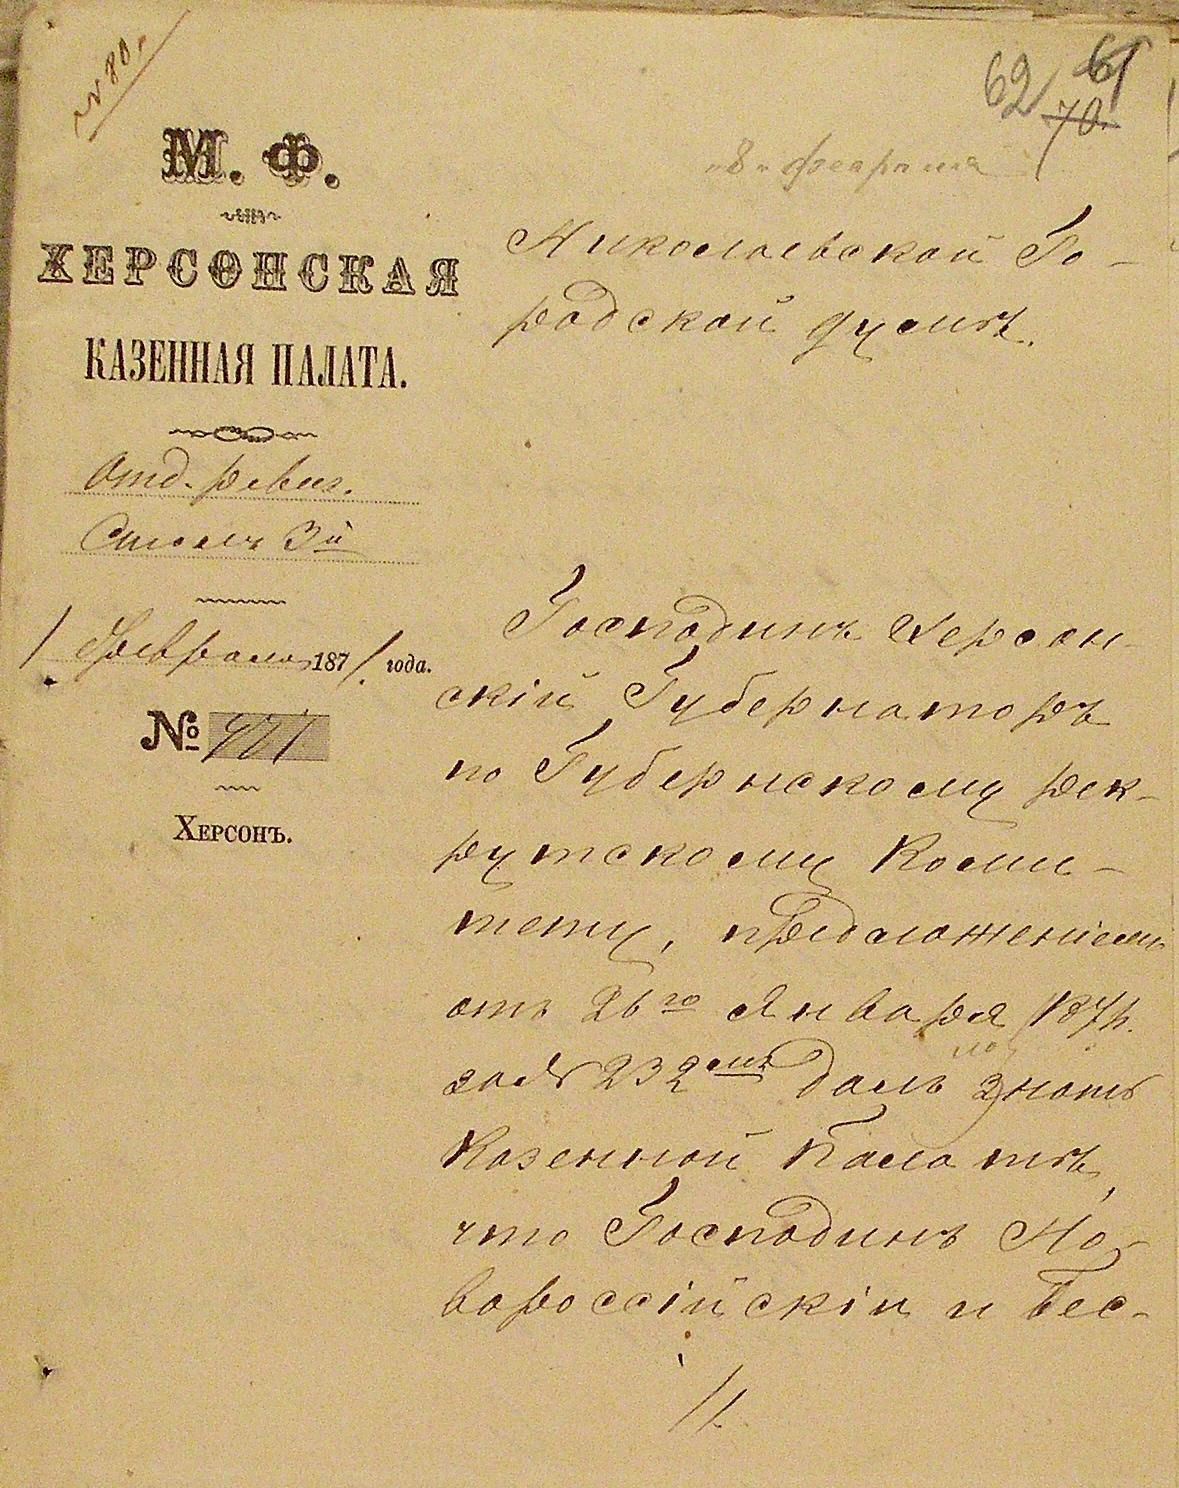 № 80.
62 61
70.
"8" февраля
М. Ф.
ХЕРСОНСКАЯ
КАЗЕННАЯ ПАЛАТА.
Отд. ревиз.
Столъ 3й
1 Февраля 1871 года.
№ 927
ХЕРСОНЪ.
Николаевской Го-
родской Думѣ.
Господинъ Херсон-
скій Губернаторъ
по Губернскому рек-
рутскому Коми-
тету, предложеніемъ
отъ 26го Января 1871г.
за № 232мъ далъ знать
Казенной Палатѣ,
что Господинъ Но-
вороссійскій и Бес-